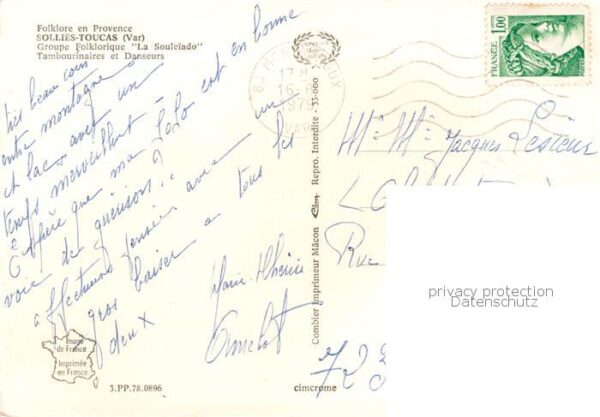 Folklore en Provence
SOLLIÈS-TOUCAS (Var)
Groupe Folklorique "La Souleiado"
Tambourinaires et Danseurs
très beau coin
entre montagne
et lac avec un
temps merveilleux
que ma Lolo est en bonne
voie de guérison.
affectueuses pensées avec un
gros baiser a tous les
deux
Marie Thérèse
17 H
16-
1979
FRANCE 1,00
Combier Imprimeur Mâcon Cim Repro. Interdite - 35-000
Mr Mme Jacques
Rue
72
privacy protection
Datenschutz
Image
de France
Imprimée
en France
3.PP.78.0896
cimcrome